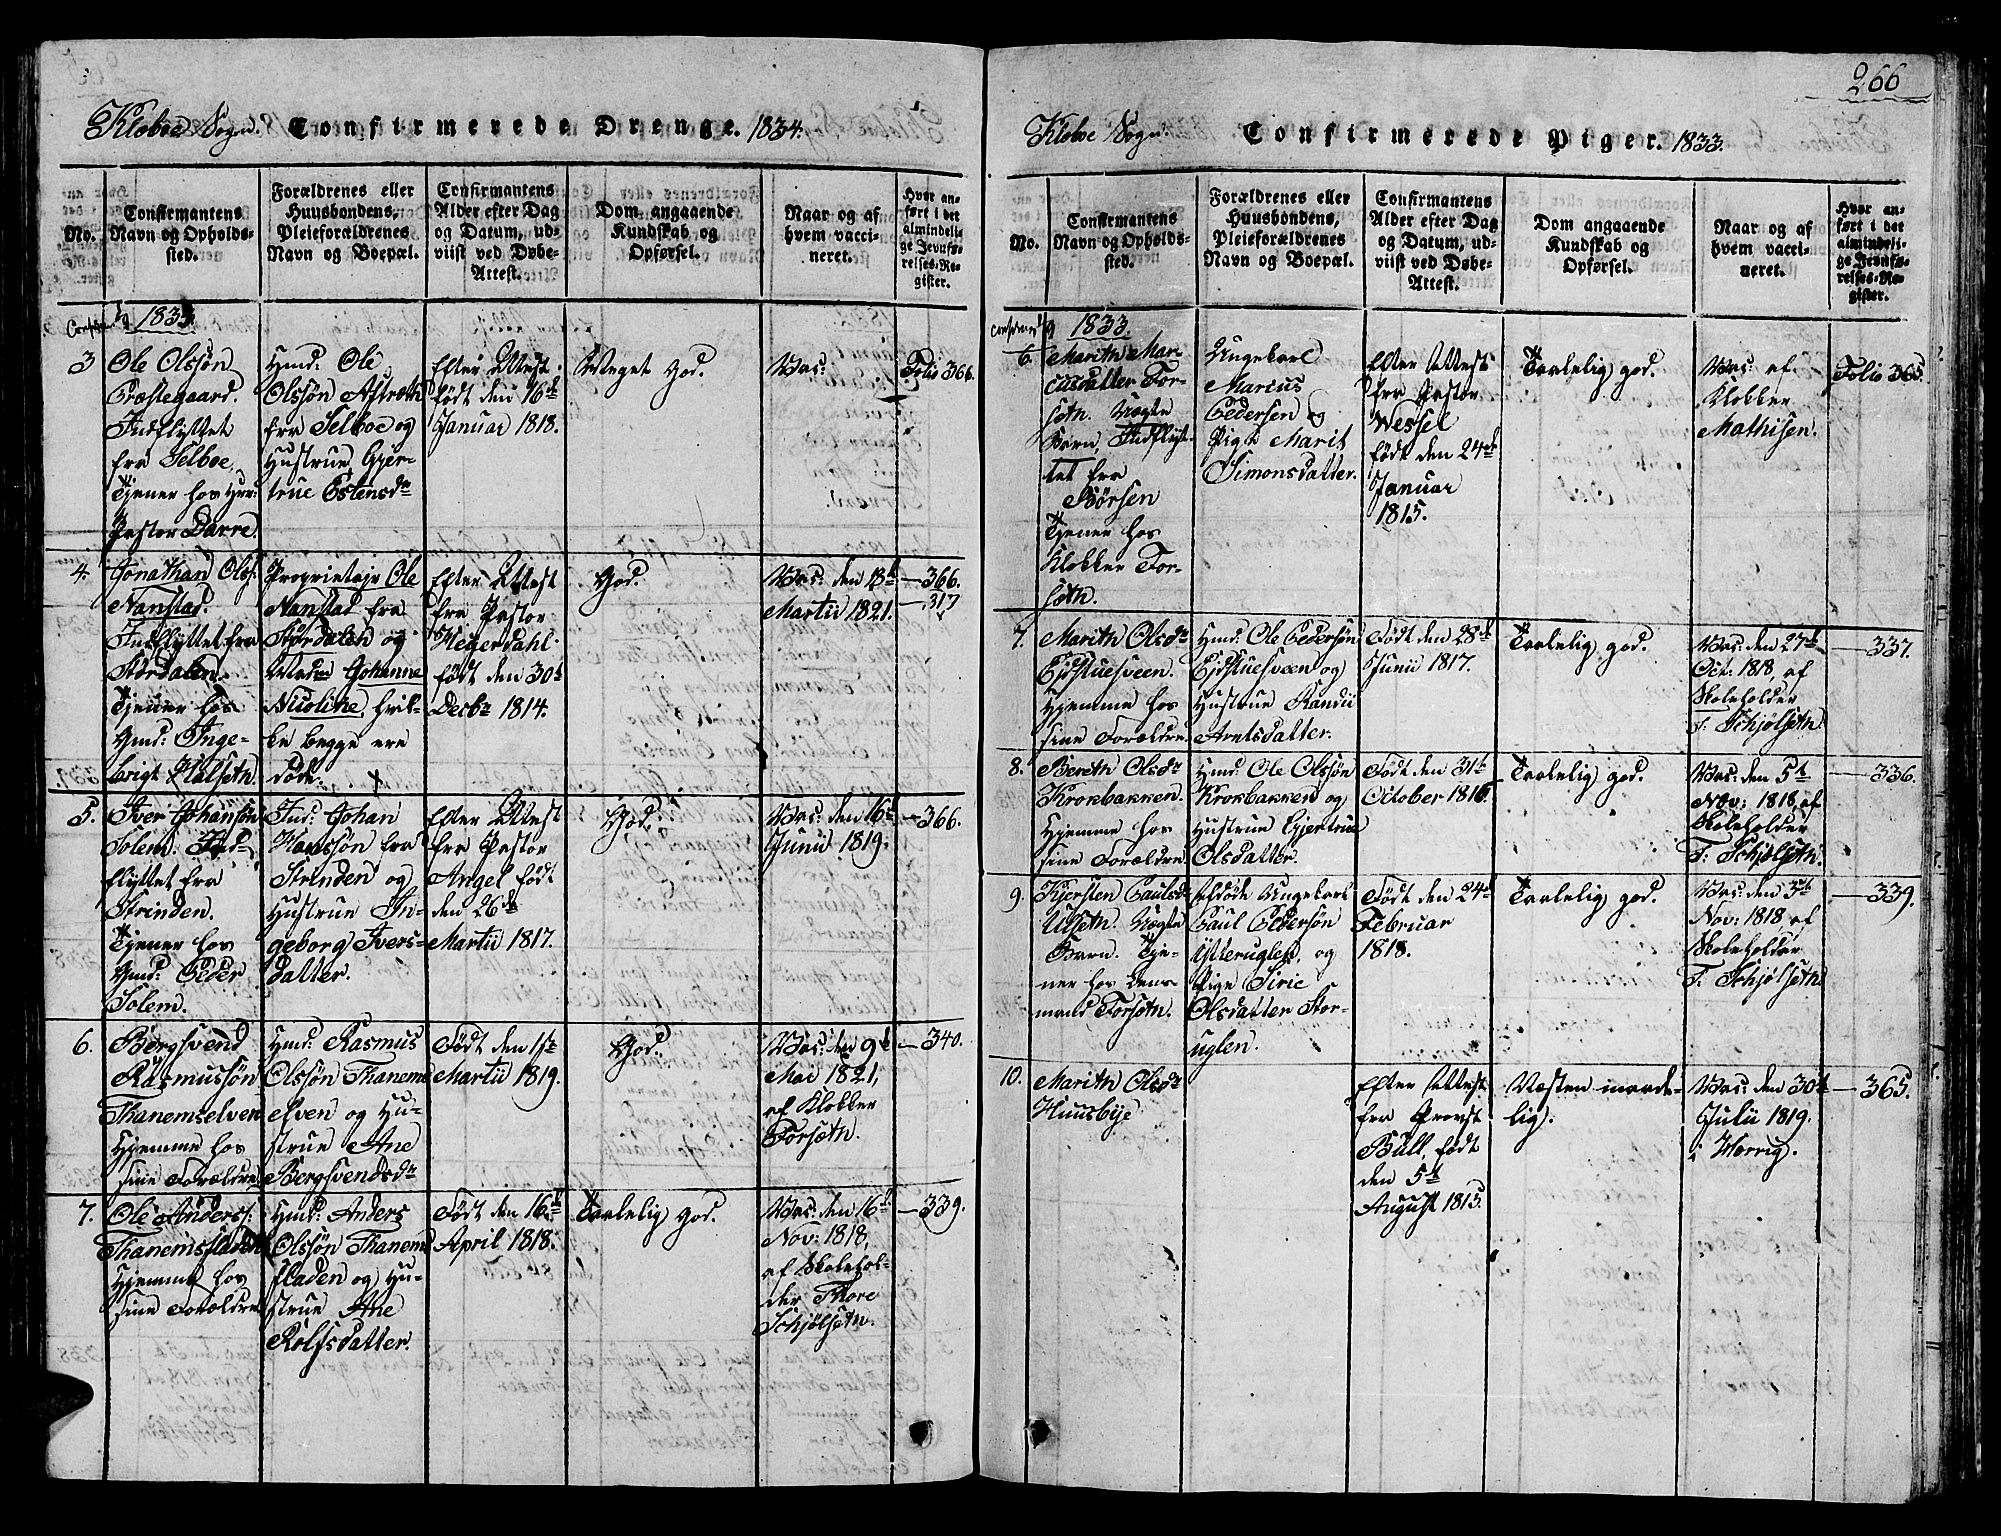 Klæboe Sogn. Confirmerede Drenge. 1834.
No.
Confirmantens
Navn og Opholds-
sted.
Forældrenes eller
Huusbondens,
Pleieforældrenes
Navn og Boepæl.
Confirmantens
Alder efter Dag
og Datum, ud-
viist ved Døbe-
Attest.
Dom angaaende
Kundskab og
Opførsel.
Naar og af
hvem vacci-
neret.
Hvor an-
ført i det
almindeli-
ge Jevnfø-
relses-Re-
gister.
3
Ole Olssøn
Præstegaard.
Indflyttet
fra Selboe.
Tjener hos Hrr:
Pastor Darre.
Hmd: Ole
Olssøn Aftreth
fra Selboe og
Hustrue Gjer-
true Estensdr
Efter Attest
født den 16de
Januar 1818.
Meget god.
Vac:
Folio 366.
4.
Jonathan Ols:
Nanstad.
Indflyttet fra
Størdalen.
Tjener hos
Gmd: Inge-
brigt Halseth.
Proprietair Ole
Nanstad fra
Størdalen og
Mad: Johanne
Nicoline, hvil-
ke begge ere
døde.
Efter Attest
fra Pastor
Hegerdahl
født den 30t
Decbr 1814.
God.
Vac: den 18t
Martii 1821.
— 366.
— 317
5.
Iver Johansøn
Solem. Ind-
flyttet fra
Strinden.
Tjener hos
Gmd: Peder
Solem.
Ind: Johan
Hanssøn fra
Strinden og
Hustrue In-
geborg Ivers-
datter.
Efter Attest
fra Pastor
Angel født
den 26de
Martii 1817.
God.
Vac: den 16de
Junii 1819.
— 366.
6.
Bergsvend
Rasmussøn
Thanemselven
Hjemme hos
sine Forældre
Hmd: Rasmus
Olssøn Thanems
elven og Hu-
strue Ane
Bergsvendsdr
Født den 1ste
Martii 1819.
God.
Vac: den 9de
Mai 1821,
af Klokker
Forseth.
— 340.
7.
Ole Anders:
Thanemsfladen
Hjemme hos
sine Forældre
Hmd: Anders
Olssøn Thanems
fladen og Hu-
strue Ane
Rolfsdatter.
Født den 16de
April 1818.
Taalelig god.
Vac: den 16de
Nov: 1818,
af Skolehol-
der Thore
Schjølseth.
— 339.
266
Klæboe Sogn. Confirmerede Piger. 1833.
No.
Confirmantens
Navn og Opholds-
sted.
Forældrenes eller
Huusbondens,
Pleieforældrenes
Navn og Boepæl.
Confirmantens
Alder efter Dag
og Datum, ud-
viist ved Døbe-
Attest.
Dom angaaende
Kundskab og
Opførsel.
Naar og af
hvem vacci-
neret.
Hvor an-
ført i det
almindeli-
ge Jevnfø-
relses-Re-
gister.
1833.
6.
Marith Mar-
cusdatter For-
seth. Uægte
Barn, Indflyt-
tet fra
Børsen
Tjener hos
Klokker For-
seth.
Ungekarl
Marcus
Pedersen og
Pige Marit
Simonsdatter.
Efter Attest
fra Pastor
Wessel
født den 24de
Januar
1815.
Taalelig god.
Vac: af
Klokker
Mathisen.
Folio 365.
7.
Marith Olsdr
Eidstuesveen.
Hjemme hos
sine Forældre.
Hmd: Ole Pedersøn
Eidstuesveen og
Hustrue Randii
Arntsdatter.
Født den 28de
Junii 1817.
Taalelig god.
Vac: den 27de
Oct: 1818, af
Skoleholder
T: Schjølseth.
— 337.
8.
Bereth Olsdr
Krokbakken.
Hjemme hos
sine Forældre.
Hmd: Ole Olssøn
Krokbakken og
Hustrue Gjertrue
Olsdatter.
Født den 31te
October 1816
Taalelig god.
Vac: den 5te
Nov: 1818, af
Skoleholder
T: Schjølseth.
— 336.
9.
Kjersten Paulsdr
Ulseth. Uægte
Barn. Tje-
ner hos Lens-
mand Forseth.
Afdøde Ungekarl
Paul Pedersøn
Ytteruglen, og
Pige Sirie
Olsdatter Stor-
uglen.
Født den 24de
Februar
1818.
Taalelig god.
Vac: den 5te
Nov: 1818 af
Skoleholder
T. Schjølseth
— 339.
10.
Marith Olsdr
Huusbye
Efter Attest
fra Provst
Bull, født
den 5te
August 1815.
Næsten maade-
lig.
Vac: den 30te
Julii 1819.
— 365.